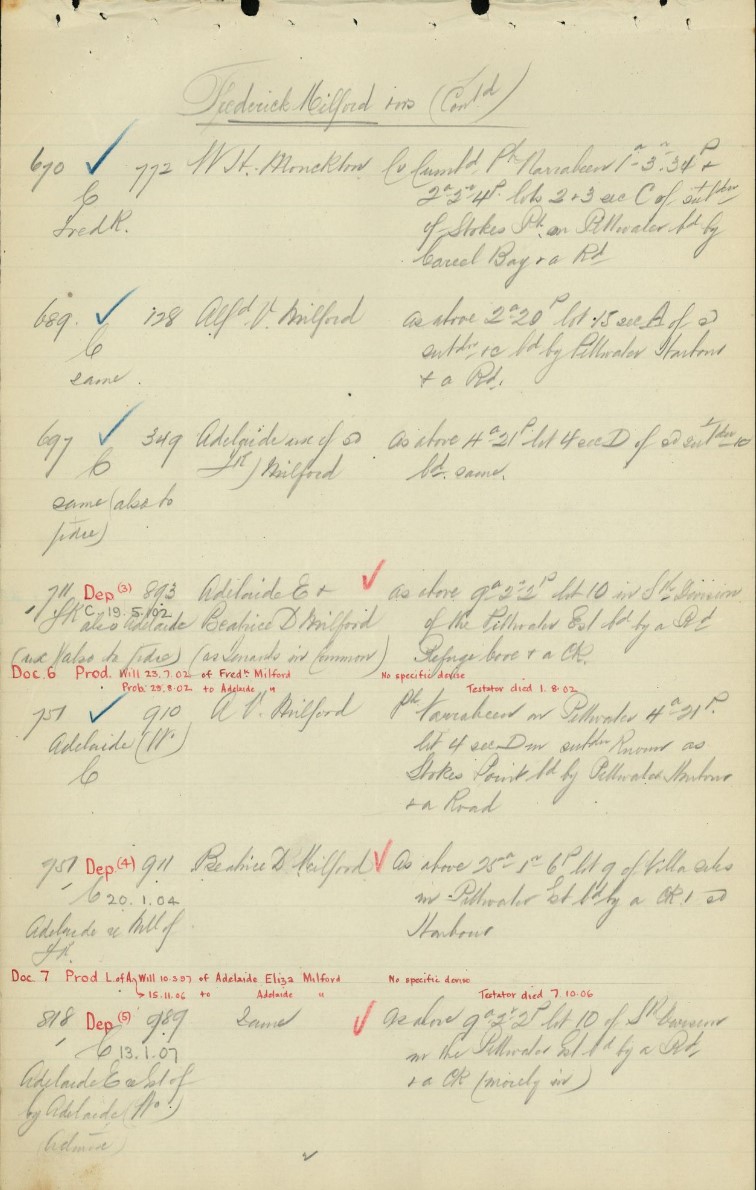 Frederick Milford & ors (Contd)
670 772 W. H. Monckton Co Cumbd. Ph. Narrabeen 1a-3r-34p +
C 2a 2r 4p. lots 2 + 3 sec C of subdvn
Fred K. of Stokes Pt. on Pittwater bd by
Careel Bay + a Rd
689. 128 Alfd V. Milford as above 2a 20p lot 15 sec A of sd
C subdvn bd by Pittwater Harbour
same. + a Rd.
697 349 Adelaide of sd as above 4a 21p lot 4 sec D of sd subdvn
C Milford bd. same.
same (also to
711 Dep (3) 893 Adelaide E + as above 9a 2r 2p lot 10 in Sth Division
C 19.5.02
also Adelaide Beatrice D Milford of the Pittwater Est bd by a Rd
(as tenants in common) Refuge Cove + a CR.
Doc. 6 Prod. Will 23.7.02 of Fredk. Milford No specific devise
Prob. 29.8.02 to Adelaide " Testator died 1.8.02
751 910 A V. Milford Ph Narrabeen on Pittwater 4a 21p.
Adelaide (Wo) lot 4 sec D in subdvn known as
C Stokes Point bd by Pittwater Harbour
+ a Road
751 Dep (4) 911 Beatrice D Milford as above 25a 1r 6p lot 9 of Villa sites
C 20.1.04 in Pittwater Est bd by a CR + sd
Adelaide Will of Harbour
Doc 7 Prod L. of A. Will 10.3.97 of Adelaide Eliza Milford No specific devise
15.11.06 to Adelaide " Testator died 7.10.06
818 Dep (5) 989 same as above 9a 2r 2p lot 10 of Sth Division
C 13.1.07 in the Pittwater Est bd by a Rd
Adelaide E Est of + a CR (moiety in)
by Adelaide (Wo.)